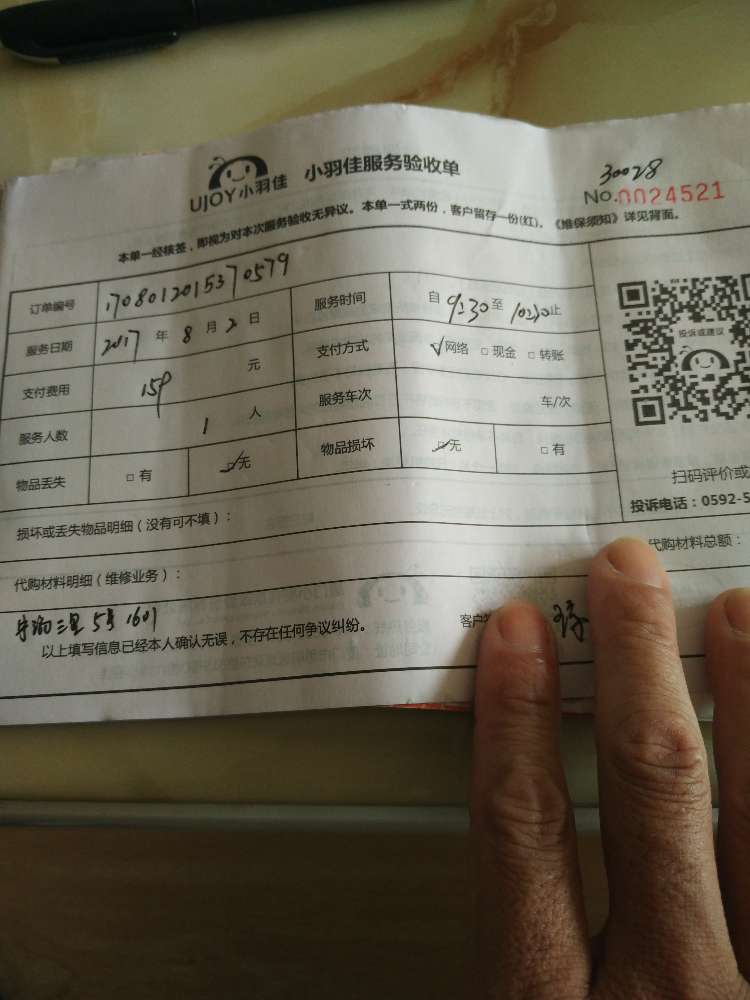 UJOY小羽佳 小羽佳服务验收单
30028
No.0024521
本单一经核签，即视为对本次服务验收无异议。本单一式两份，客户留存一份(红)。《维保须知》详见背面。
订单编号 1708012015370579 服务时间 自 9:30 至 10:30 止
服务日期 2017 年 8 月 2 日 支付方式 ☑网络 □现金 □转账
支付费用 159 元 服务车次 车/次
服务人数 1 人 物品损坏 ☑无 □有
物品丢失 □有 ☑无
投诉或建议
扫码评价或
投诉电话：0592-5
损坏或丢失物品明细（没有可不填）：
代购材料明细（维修业务）： 代购材料总额：
三里 5号 1601
以上填写信息已经本人确认无误，不存在任何争议纠纷。 客户